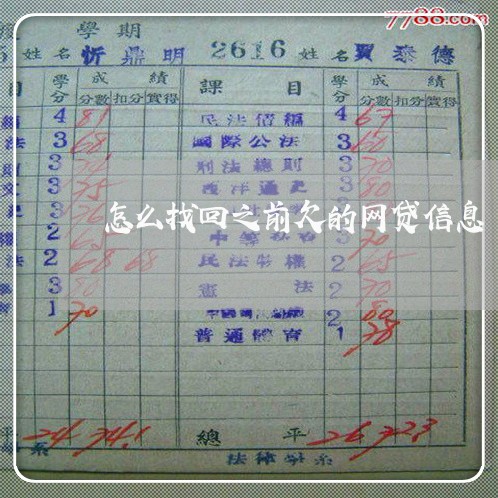 7788.com
學期
姓名 忻鼎明 2616 姓名 賈泰德
目 學分 成績 課目 學分 成績
分數 扣分 實得 分數 扣分 實得
4 81 民法債編 4 67
法 3 68 國際公法 3 60
3 刑法總則 3 70
3 75 西洋通史 3 80
3 76 3
怎么找回之前欠的网贷信息
2 3 70
法 2 68 68 民法物權 2 65
3 80 憲法 2 70
1 70 2 80
普通體育 1 78
平 24 74.1 總平 26 72.3
系 法律學系